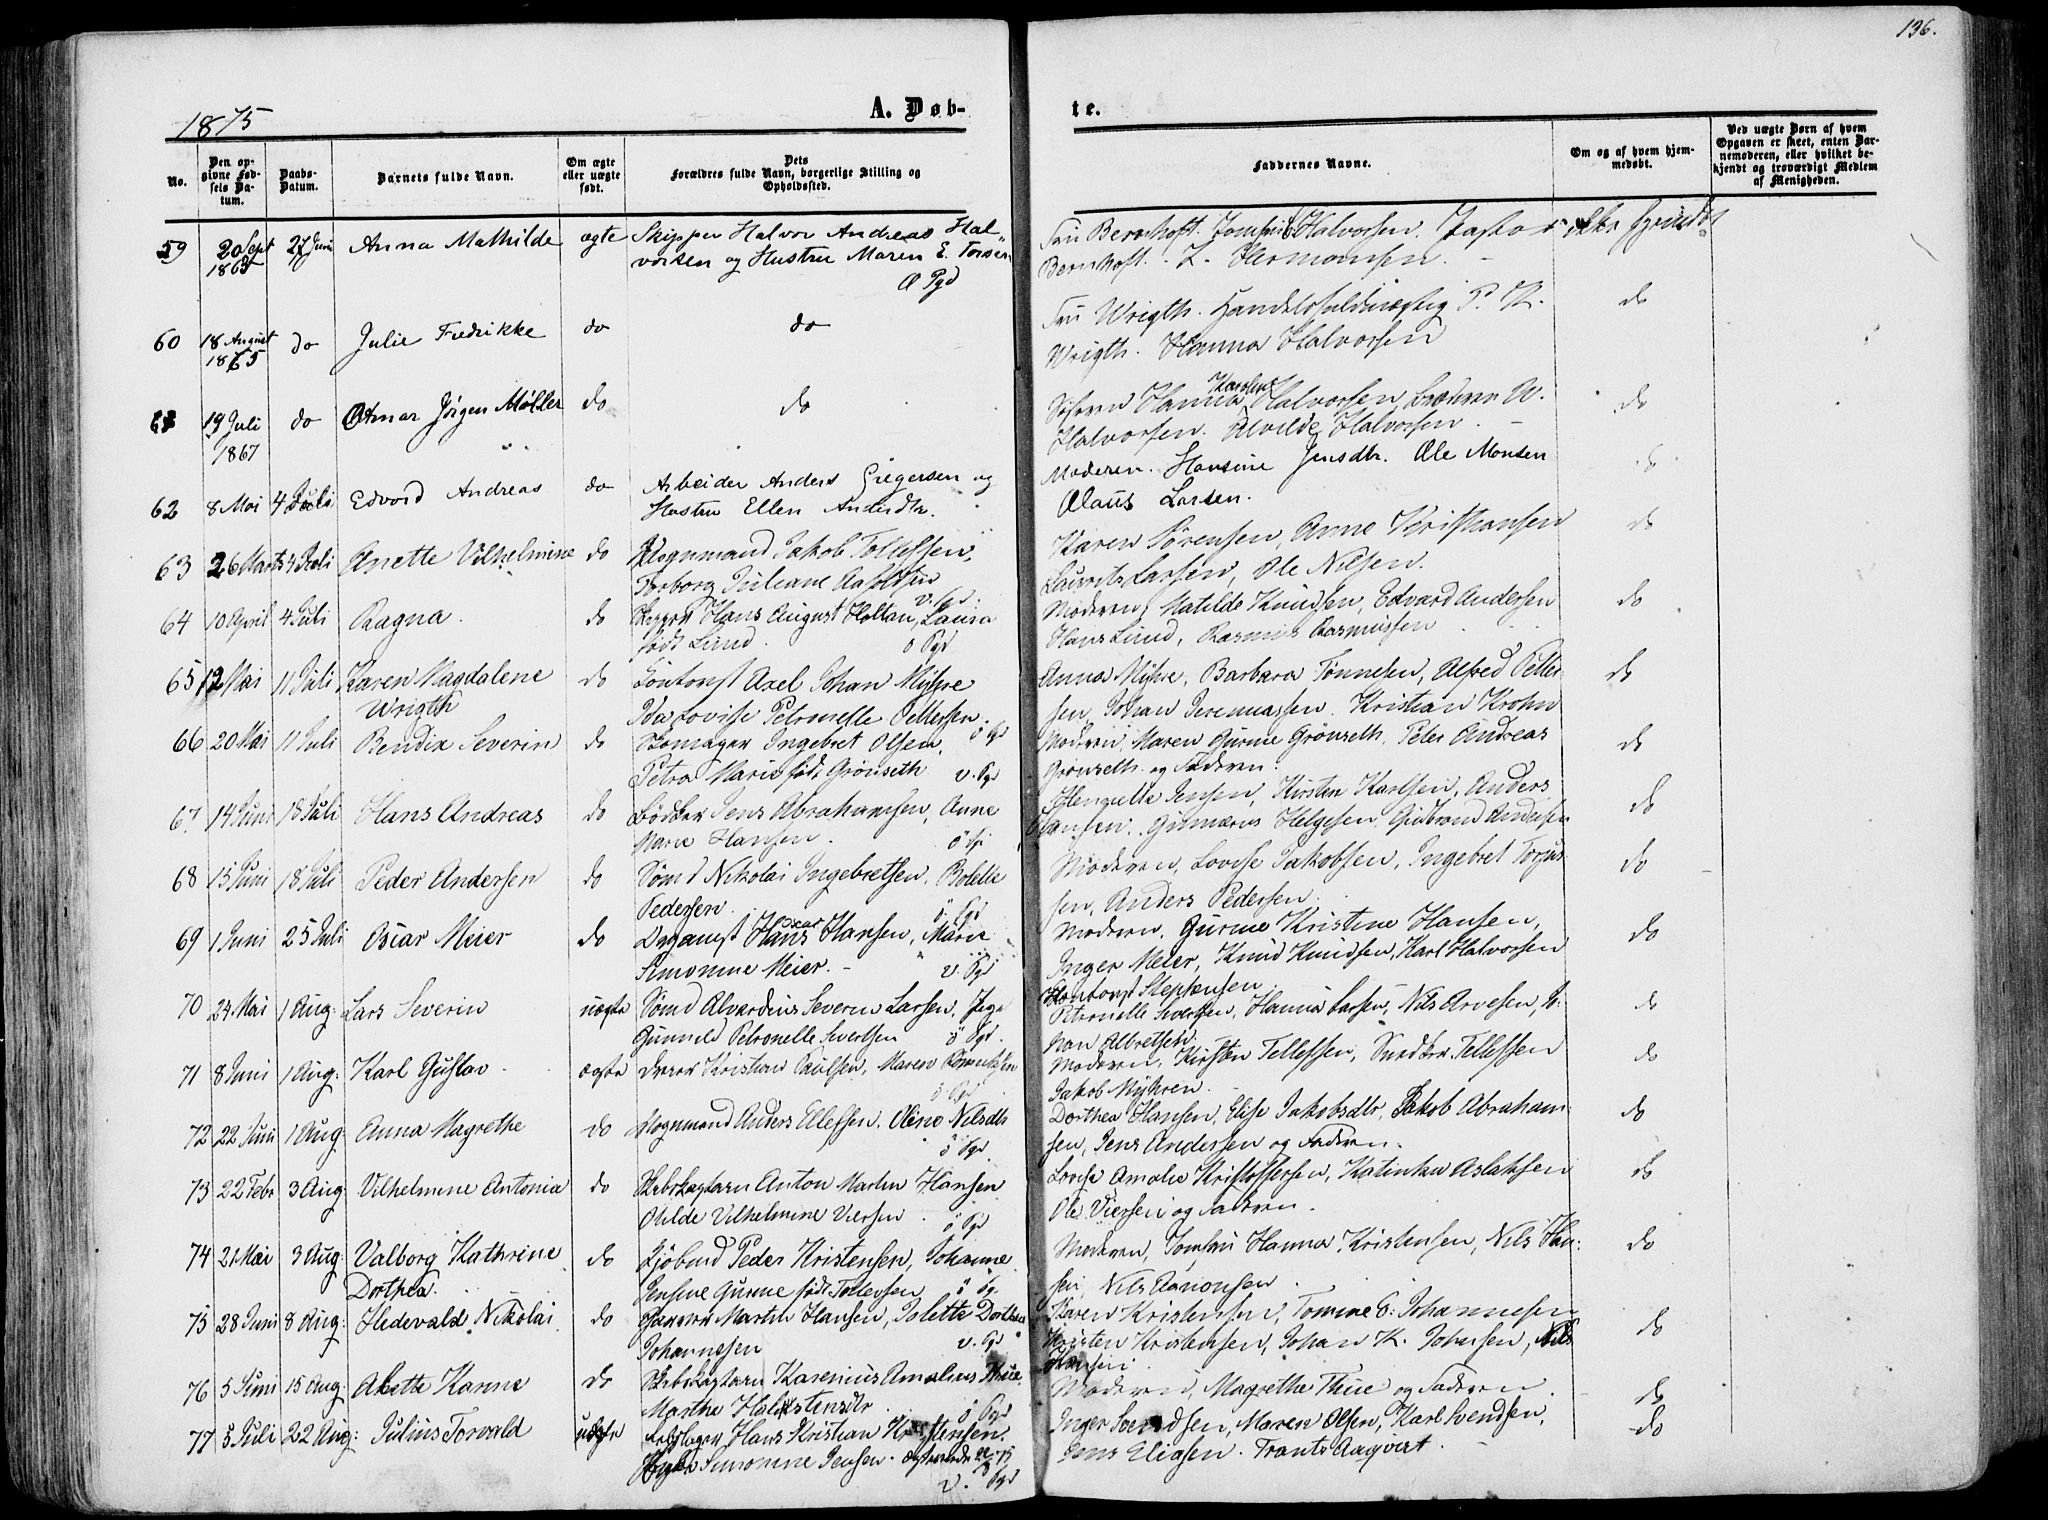 136.
1875
A. Døb-
te.
No.
Den op-
givne Fød-
sels Da-
tum.
Daabs-
Datum.
Barnets fulde Navn.
Om ægte
eller uægte
født.
Dets
Forældres fulde Navn, borgerlige Stilling og
Opholdssted.
Faddernes Navne.
Om og af hvem hjem-
medøbt.
Ved uægte Børn af hvem
Opgaven er skeet, enten Bar-
nemoderen, eller hvilket be-
kjendt og troværdigt Medlem
af Menigheden.
59 20 Sept 27 Juni Anna Mathilde ægte Skipper Halvor Andreas Hal-
vorsen og Hustru Maren E.
Ø Pgd
Fru Bernhoft. Jomfru Halvorsen.
Bernhoft. Hermansen.
60 18 August do Julie Fredrikke do do
1865
Fru Wrigth. P. K. do
Wrigth. Hanna Halvorsen
61 19 Juli do Otmar Jørgen Møller do do
1867
Hanna Halvorsen W. do
Halvorsen. Alvilde Halvorsen.
62 8 Mai 4 Juli Edvard Andreas do Arbeider Anders Gregersen og
Hustru Ellen Andersdtr.
Moderen. Hansine Jensdtr. Ole Monsen do
Olaus Larsen.
63 26 Marts 4 Juli Anette Vilhelmine do Vognmand Jakob Tollefsen,
Torborg Juliane
v. Pgd.
Karen Sørensen, Anne Kristiansen do
Laurits Larsen, Ole Nilsen.
64 10 April 4 Juli Ragna. do Hans August Holtan, Laura
født Lund. ö Pgd
Moderen, Matilde Knudsen, Edvard Andersen do
Hans Lund, Rasmus Rasmussen
65 12 Mai 11 Juli Karen Magdalene do Kontorist Axel Johan Myhre
Wrigth
Ida Lovise Petronelle Pettersen.
ö Pgd
Anna Myhre, Barbara Tønnesen, Alfred Petter- do
sen, Johan Jeremiassen. Kristian Krohn
66 20 Mai 11 Juli Bendix Severin do Skomager Ingebret Olsen,
Petra Marie født Grønseth v. Pgd
Moderen, Maren Gurine Grønseth, Peter Andreas do
Grønseth og Faderen.
67 14 Juni 18 Juli Hans Andreas do Bødker Jens Abrahamsen, Anne
Marie Hansen. ö Pgd
Jensen, Kirsten Karlsen, Anders do
Hansen. Gunnerius Helgesen, Gudbrand Andersen
68 15 Juni 18 Juli Peder Andersen do Sømd Nikolai Ingebretsen, Bolette
Pedersen. ö Pgd
Moderen, Lovise Jakobsen, Ingebret Torjus- do
sen, Anders Pedersen.
69 1 Juni 25 Juli Oscar Meier do Hans Oscar Hansen, Marie
Simonine Meier. v. Pgd
Moderen, Gurine Kristine Hansen, do
Inger Meier, Knud Knudsen, Karl Halvorsen
Kontorist Stephansen
70 24 Mai 1 Aug: Lars Severin uægte Sømd Severin Larsen, Pige
Gunnild Petronelle Severtsen ö Pgd.
Petronelle Severtsen, Hanna Larsen, Nils Arvesen, do
Albretsen
71 8 Juni 1 Aug: Karl Gustav ægte Kristian Poulsen, Maren
ö Pgd
Moderen, Kirsten Tellefsen, Tellefsen do
Jakob Myhren.
72 22 Juni 1 Aug: Anna Magrethe do Vognmand Anders Ellefsen, Oline Nilsdtr
ö Pgd.
Dorthea Hansen, Elise Jakobsdtr, Jakob Abraham- do
sen, Jens Andersen og Faderen.
73 22 Febr 3 Aug: Vilhelmine Antonia do Anton Martin Hansen
Vilhelmine ö Pgd
Lovise Amalie Kristoffersen, Katinka Aslaksen do
Ole og Faderen.
74 21 Mai 3 Aug: Valborg Kathrine do Peder Kristensen, Johanne
Dorthea.
Jensine Gurine født Tollevsen ö Pg.
Moderen, Jomfru Hanna Kristensen, Nils Han- do
sen, Nils Aanonsen.
75 28 Juni 8 Aug: Hedevald Nikolai do Martin Hansen, Dorthea
Johannesen v. Pgd
Karen Kristensen, Tomine Johannesen do
Kristen Kristensen, Johan K. Johnsen, Nils
Hansen.
76 5 Juni 15 Aug: Karine do Karenius Amalius Thue.
Marthe ö Pgd
Moderen, Magrethe Thue og Faderen. do
77 5 Juli 22 Aug: Julius Torvald uægte Hans Kristian Kristensen.
Pige Simonine Jensen.
v. Pgd
Inger Svendsen, Maren Olsen, Karl Svendsen, do
Jens Eliasen. Frants Aaqvist.